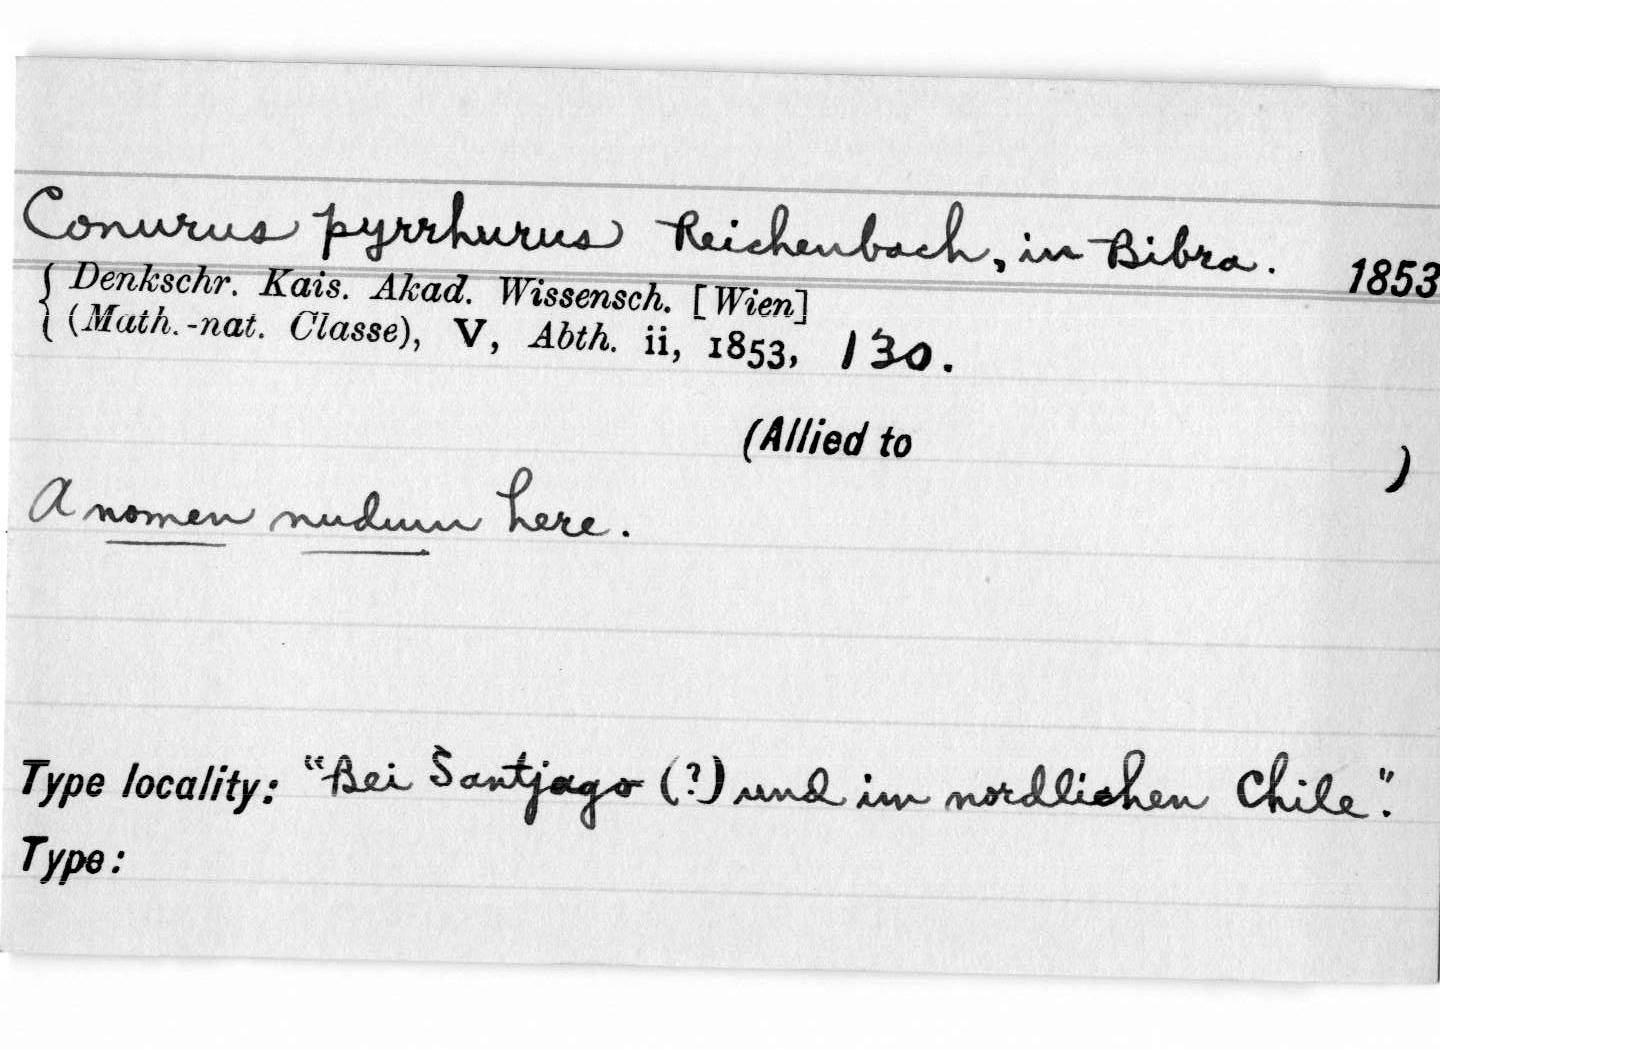 Conurus pyrrhurus Reichenbach, in Bibra. 1853
Denkschr. Kais. Akad. Wissensch. [Wien]
(Math.-nat. Classe), V, Abth. ii, 1853, 130.
(Allied to )
A nomen nudum here.
Type locality: "Bei Santjago (?) und im nordlichen Chile".
Type: